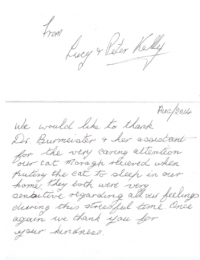 From
Lucy & Peter Kelly
Dec/2016
We would like to thank
Dr Burmeister & her assistant
for the very caring attention
our cat Moragh recieved when
Puting the cat to sleep in our
home they both were very
sensitive regarding all our feelings
during this stressful time Once
again we thank you for
your kindness.